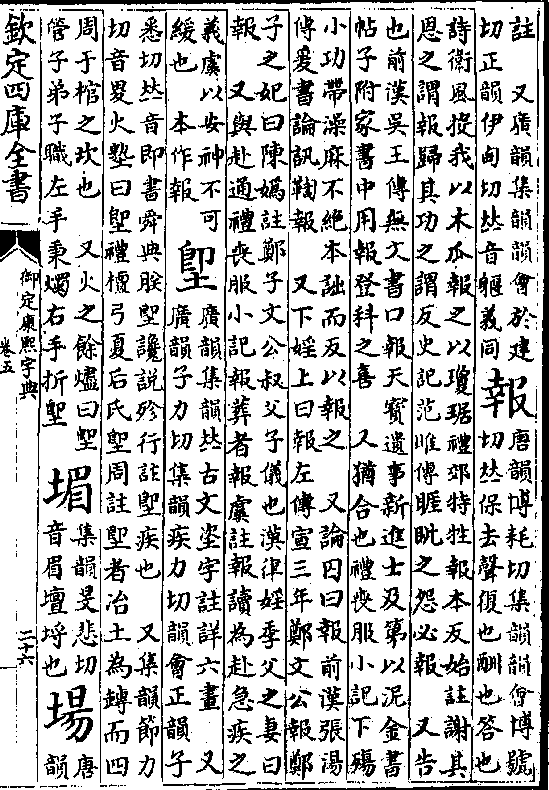 註　又廣韻集韻韻會於建
切正韻伊甸切𠀤音軀義同
報
唐韻博耗切集韻韻會博號
切𠀤保去聲復也酬也答也
詩衛風投我以木瓜報之以瓊琚禮郊特牲報本反始註謝其
恩之謂報歸其功之謂反史記范雎傳睚眦之怨必報　又告
也前漢吳王傳無文書口報天寶遺事新進士及第以泥金書
帖子附家書中用報登科之喜　又猶合也禮喪服小記下殤
小功帶澡麻不絕本詘而反以報之　又論囚曰報前漢張湯
傳爰書論訊鞫報　又下婬上曰報左傳宣三年鄭文公報鄭
子之妃曰陳媯註鄭子文公叔父子儀也漢律婬季父之妻曰
報　又與赴通禮喪服小記報葬者報虞註報讀為赴急疾之
義虞以安神不可
緩也　本作報
堲
廣韻集韻𠀤古文垐字註詳六畫　又
廣韻子力切集韻疾力切韻會正韻子
悉切𠀤音即書舜典朕堲讒說殄行註堲疾也　又集韻節力
切音畟火𡎺曰堲禮檀弓夏后氏堲周註堲者冶土為甎而四
周于棺之坎也　又火之餘燼曰堲
管子弟子職左手秉燭右手折堲
堳
集韻旻悲切
音眉壇埒也
場
唐
韻
欽定四庫全書
御定康熙字典
卷五
二十六